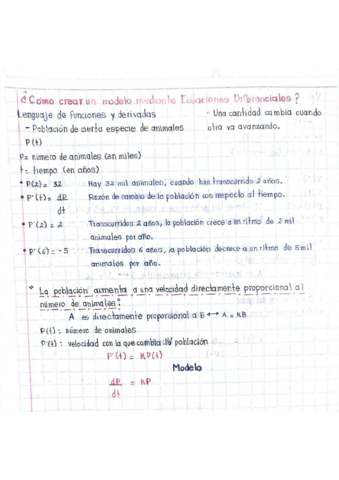 ¿Cómo crear un modelo mediante Ecuaciones Diferenciales?
Lenguaje de funciones y derivadas
- Una cantidad cambia cuando
- Población de cierta especie de animales
otra va avanzando.
P(t)
P= número de animales (en miles)
t= tiempo (en años)
* P(2) = 32 Hay 32 mil animales, cuando han transcurrido 2 años.
* P'(t) = dP Razón de cambio de la población con respecto al tiempo.
dt
* P'(2) = 2 Transcurridos 2 años, la población crece a un ritmo de 2 mil
animales por año.
* P'(6) = -5 Transcurridos 6 años, la población decrece a un ritmo de 5 mil
animales por año.
* La población aumenta a una velocidad directamente proporcional al
número de animales:
A es directamente proporcional a B ↔ A = KB
P(t): número de animales
P'(t): velocidad con la que cambia la población
P'(t) = KP(t)
Modelo
dP = KP
dt